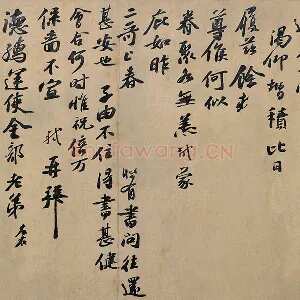 渴仰增積比日
履茲餘寒
尊候何似
眷聚各無恙軾蒙
庇如昨
二哥上春比有書問往還
甚安也子由不住得書甚健
會合何時惟祝倍万
保嗇不宣軾再拜
德孺運使金部老弟